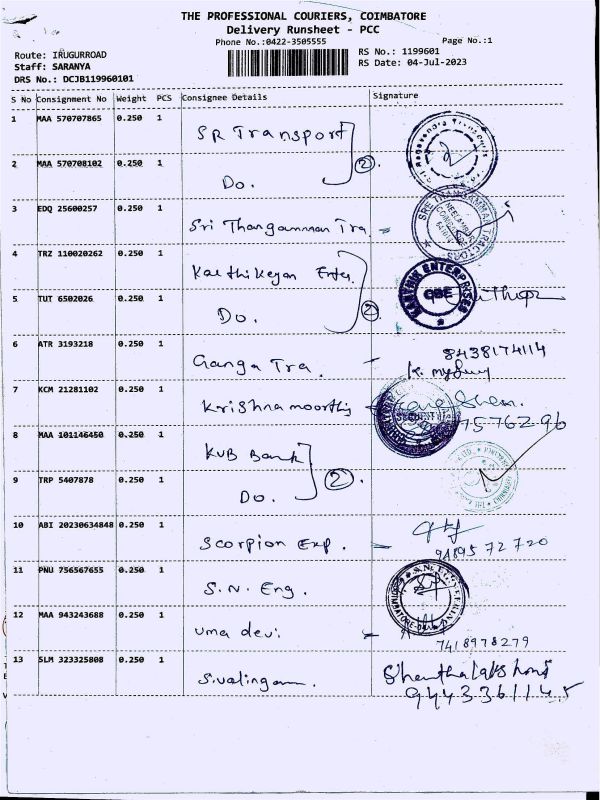 THE PROFESSIONAL COURIERS, COIMBATORE
Delivery Runsheet - PCC
Phone No.:0422-3505555 Page No.:1
Route: IRUGURROAD RS No.: 1199601
Staff: SARANYA RS Date: 04-Jul-2023
DRS No.: DCJB119960101
S No Consignment No Weight PCS Consignee Details Signature
1 MAA 570707865 0.250 1 SR Transport
2 MAA 570708102 0.250 1 Do. 2
3 EDQ 25600257 0.250 1 Sri Thangamman Tra.
4 TRZ 110020262 0.250 1 Karthikeyan Enter.
5 TUT 6502026 0.250 1 Do. 2 KARTHIK ENTERPRISES
6 ATR 3193218 0.250 1 Ganga Tra. 8438174114
7 KCM 21281102 0.250 1 Krishnamoorthy SECURITY
8 MAA 101146450 0.250 1 KVB Bank
9 TRP 5407878 0.250 1 Do. 2
10 ABI 20230634848 0.250 1 Scorpion Exp. 94895 72720
11 PNU 756567655 0.250 1 S.N. Eng.
12 MAA 943243688 0.250 1 Uma devi. 7418978279
13 SLM 323325808 0.250 1 Sivalingam. Shanthalakshmi
9443361145